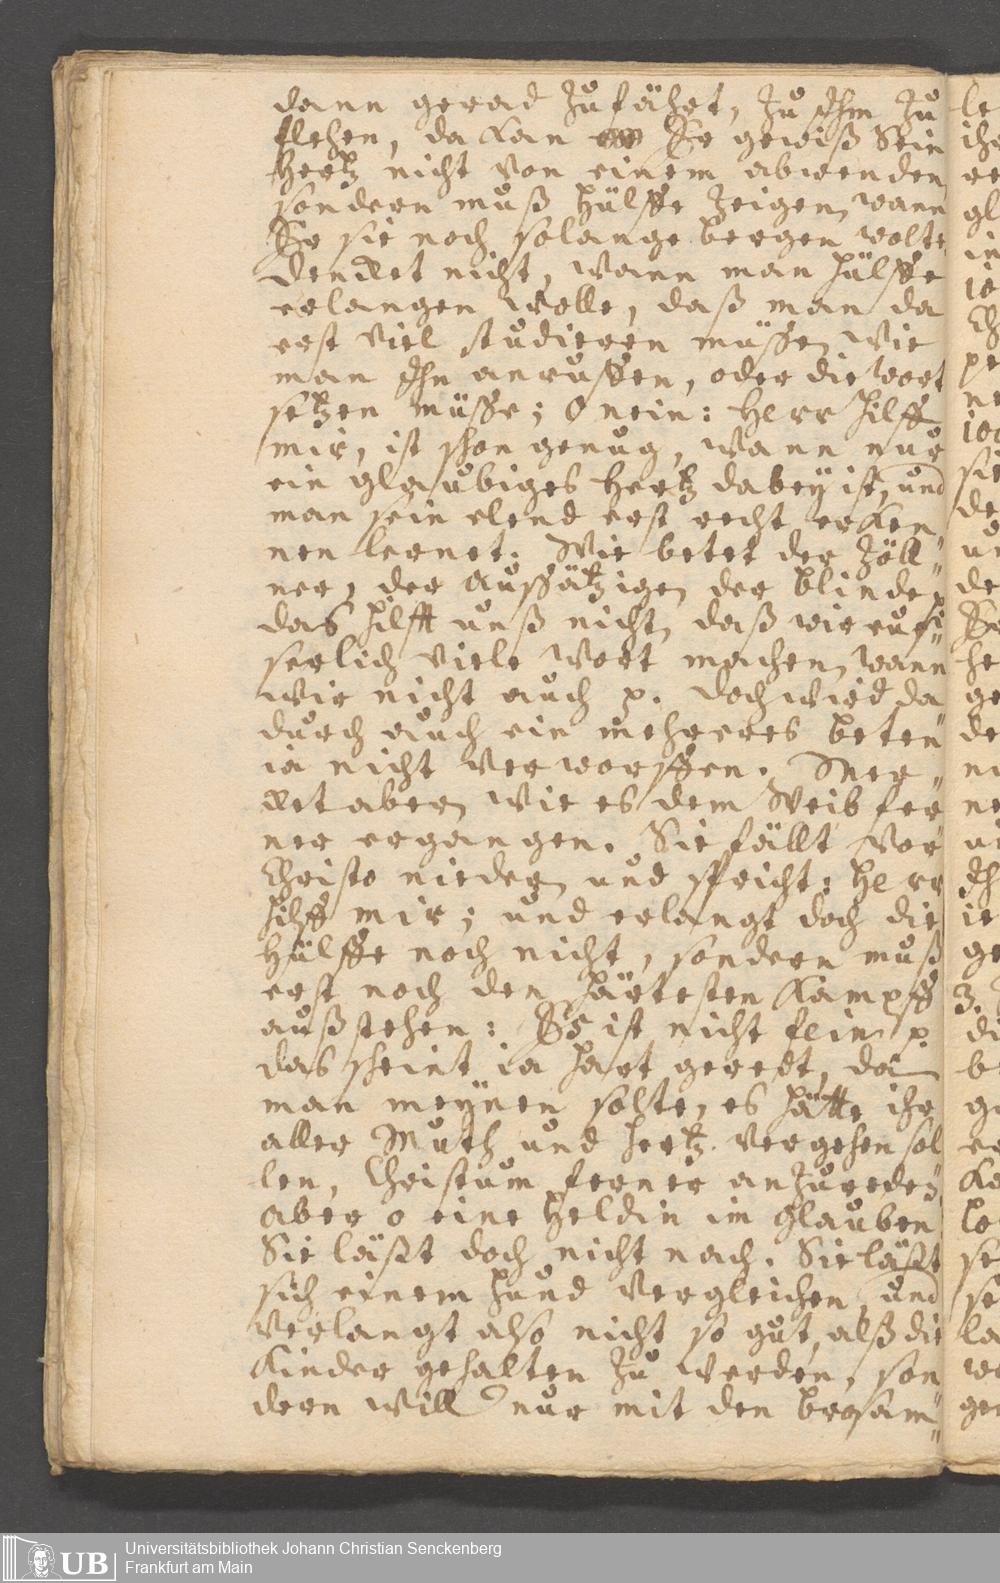 dann gerad zufährt, zu Ihm zu
flehen, da kan Er gewiß Sein
Hertz nicht von einem abwenden
sondern muß Hülffe zeigen, wann
Er sie noch solange bergen wolte
Dencket nicht, wann man Hülffe
erlangen wolle, daß man da
erst viel studieren müsse, wie
man Ihn anruffen, oder die wort
setzen müsse; O nein: Herr hilff
mir, ist schon genug, wann nur
ein glaubiges Hertz dabey ist, und
man sein elend erst recht erken„
nen lernet. Wie betet der Zöll„
ner, der Aussätzige, der Blinde p
das hilfft unß nicht, daß wir euß„
serlich viele Wort machen, wann
wir nicht auch p. doch wird da
durch auch ein mehreres beten
ia nicht verworffen. Mer„
cket aber, wie es dem Weib fer
ner ergangen. Sie fällt vor
Christo nieder, und spricht: Herr
hilff mir; und erlangt doch die
Hülffe noch nicht, sondern muß
erst noch den härtesten Kampff
außstehen: Es ist nicht fein p.
das scheint ia hart geredt, da
man meynen solte, es hätte ihr
aller Muth und Hertz vergehen sol
len, Christum ferner anzureden,
aber o eine Heldin im Glauben
Sie läßt doch nicht nach. Sie läßt
sich einem Hund vergleichen, und
verlangt also nicht so gut, alß die
Kinder gehalten zu werden, son
dern will nur mit den brosam„
UB Universitätsbibliothek Johann Christian Senckenberg
Frankfurt am Main